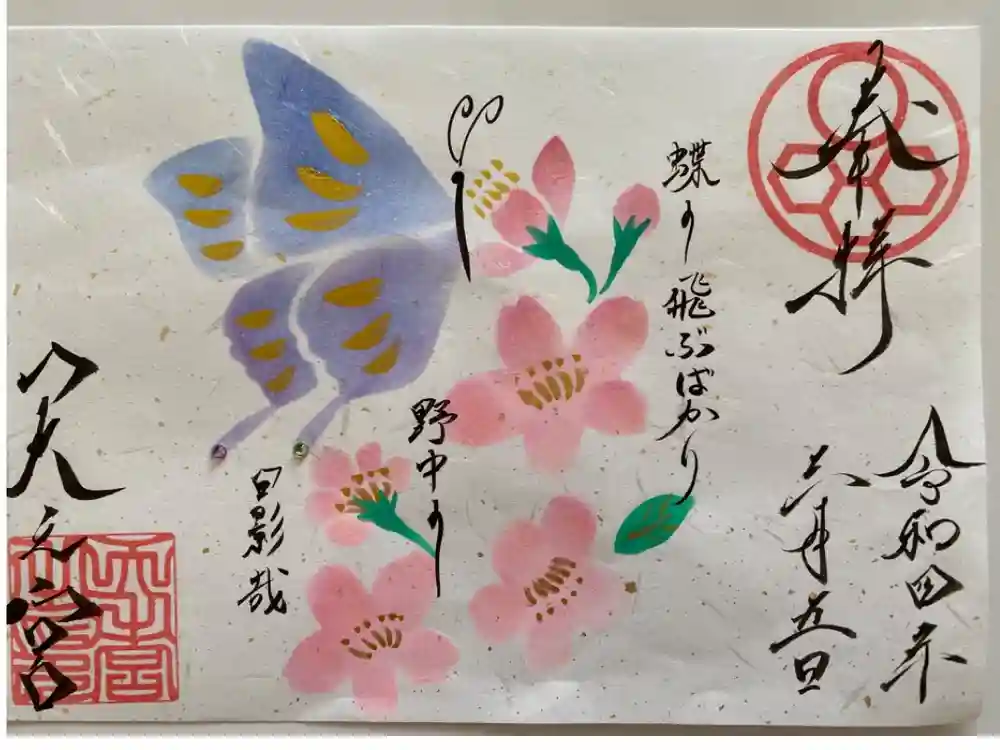 奉拝
令和四年
六月五日
蝶の飛ぶばかり
野中の
日影哉